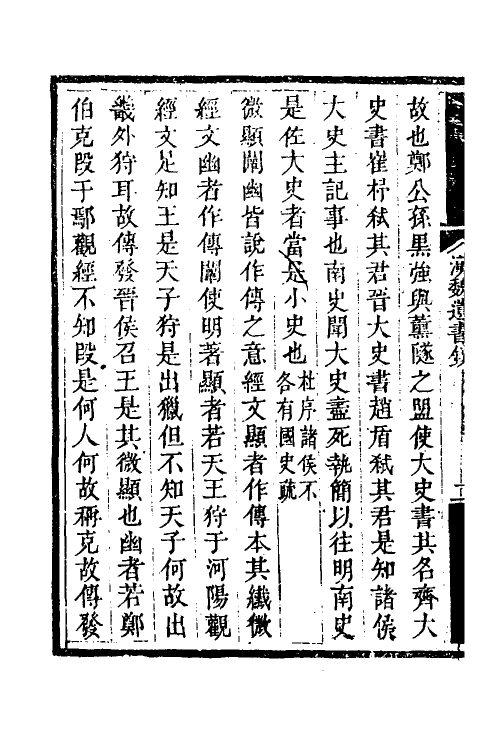 故也鄭公孫黑強與薰隧之盟使大史書其名齊大
史書崔杼弒其君晉大史書趙盾弒其君是知諸侯
大史主記事也南史聞大史盡死執簡以往明南史
是佐大史者當是小史也杜序諸侯不
各有國史疏
微顯闡幽皆說作傳之意經文顯者作傳本其纖微
經文幽者作傳闡使明著顯者若天王狩于河陽觀
經文是知王是天子狩是出獵但不知天子何故出
畿外狩耳故傳發晉侯召王是其微顯也幽者若鄭
伯克段于鄢觀經不知段是何人何故稱克故傳發
漢魏遺書鈔